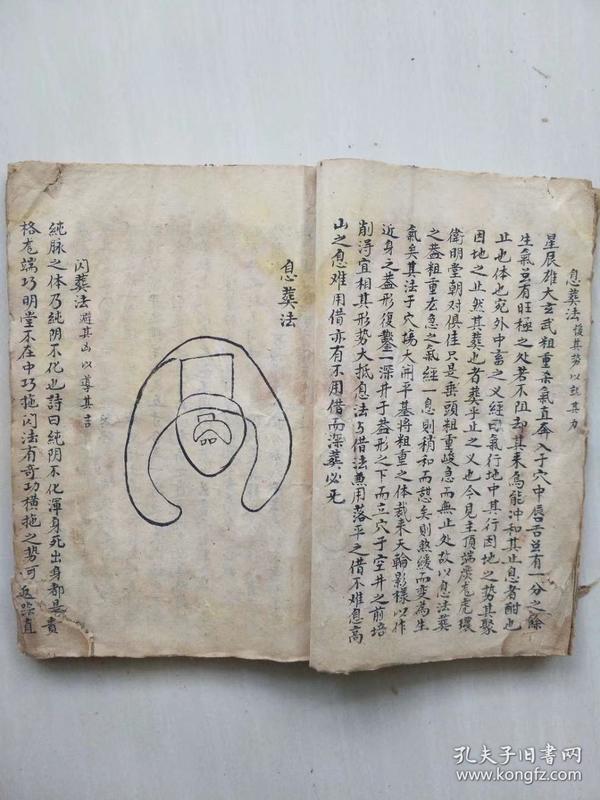 息葬法 後其势以就其力
星辰雄大玄武粗重杀氣直奔入于穴中唇舌並有一分之餘
生氣並有旺極之处若不阻却其来烏能冲和其止息者酣也
止也体也宛外中畜之义經曰氣行地中其行因地之势其聚
因地之止然其葬也者葬乎止之义也今見主頂端庻龙虎環
衛明堂朝对俱佳只是垂頭粗重峻急而無止处故以息法葬
之盖粗重左急之氣經一息則稍和而甜矣則煞緩而变為生
氣矣其法于穴塲大開平基将粗重之体裁来天輪影樣以作
近身之盖形復鑿一深井于盖形之下而立穴于空井之前培
削淂宜相其形势大抵息法与借法兼用落平之借不难息高
山之息难用借亦有不用借而深葬必死
息葬法
闪葬法 避其凶以導其吉
純脉之体乃純阴不化也詩曰純阴不化渾身死出身都是貴
格龙端巧明堂不在中巧拖闪法有奇功横拖之势可 直
孔夫子旧书网
www.kongfz.com